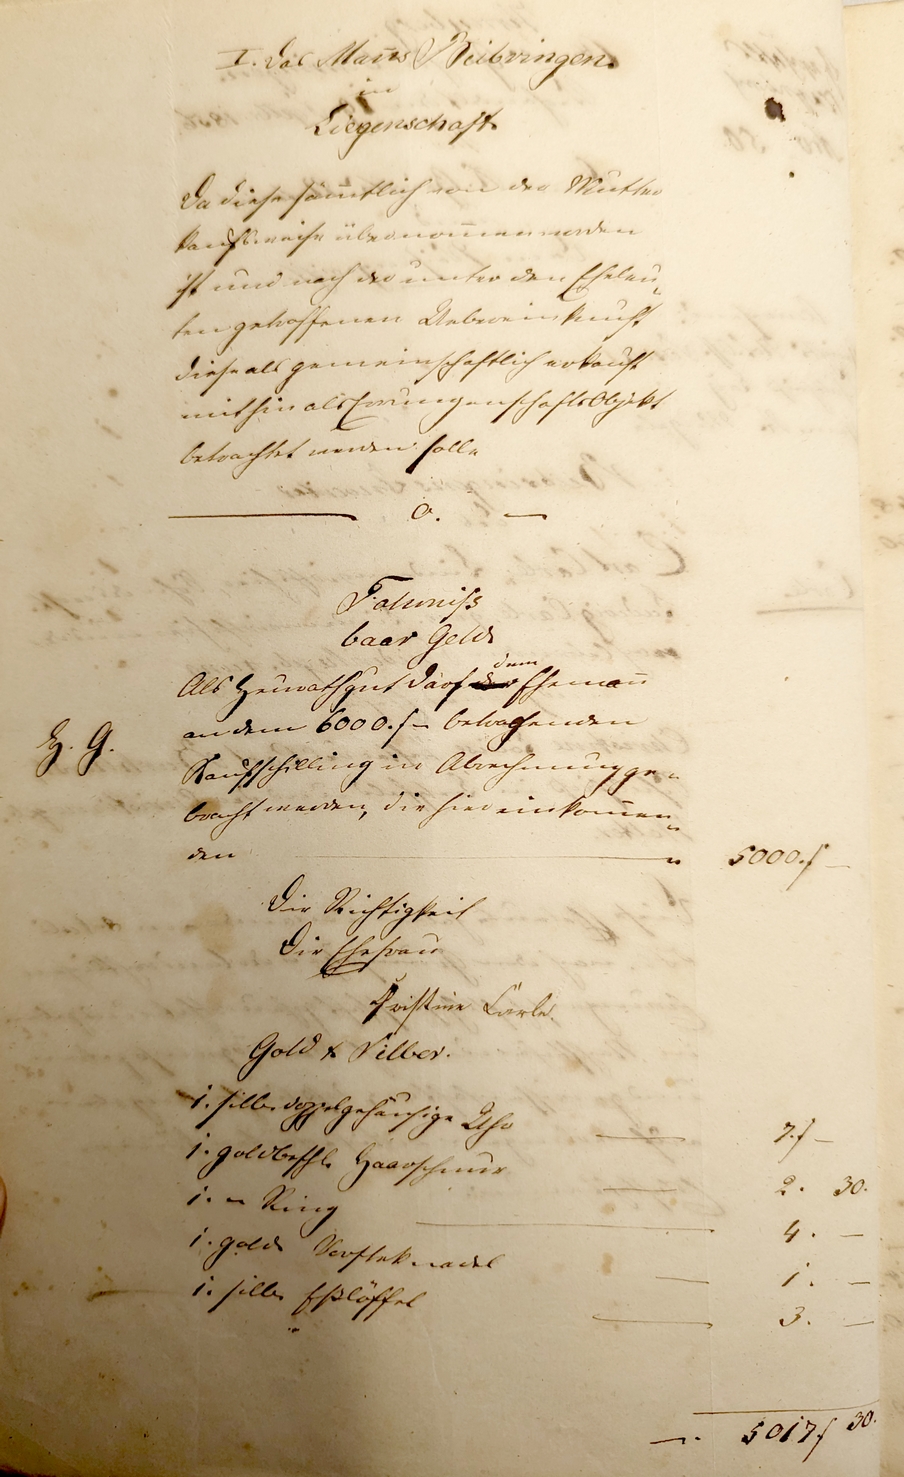 I. Das Mañs Beibringen.
in
Liegenschaft.
Da diese sämtlich von der Mutter
kaufsweise übernom̄en worden
ist und nach der unter den Eheleu„
ten getroffenen Uebereinkunft
diese als gemeinschaftlich erkauft
mithin als Errungenschafts Objekt
betrachtet werden soll.
0.
Fahrniß
baar Geld
dem
Als Heurathgut darf Eheman̄
an dem 6000.f – betragenden
H. G.
Kaufschilling in Abrechnung ge„
bracht werden, die hier einkom̄en„
den „ 5000.f –
Die Richtigkeit
Die Ehefrau
Kristine Carle.
Gold & Silber.
1. silber doppelgehäusige Uhr 7.f –
1. goldbeschl. Haarschnur 2. 30.
1. „ Ring 4. –
1. gold. Vorsteknadel 1. –
1. silb. Eßlöffel 3. –
5017f 30.